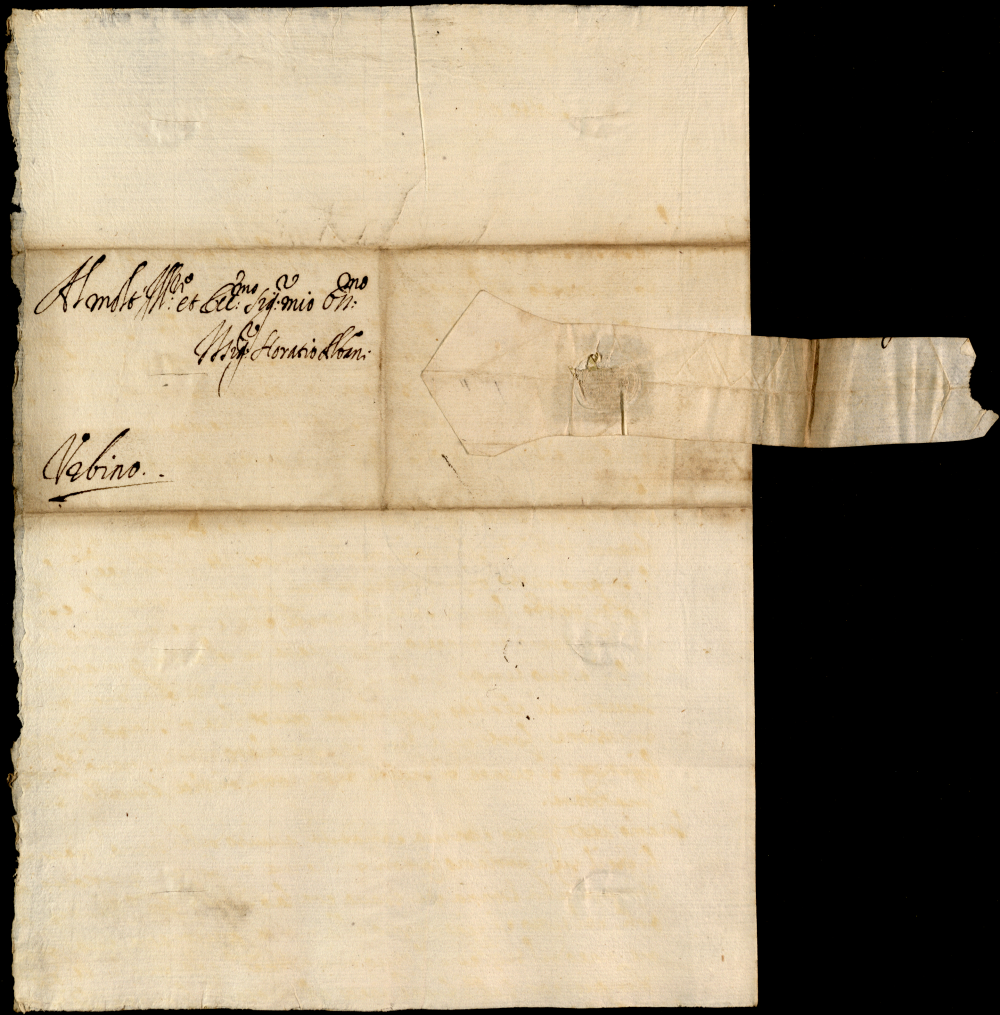 Al molto Ill:re et Ecc:mo Sig:r mio Oss:mo
Il Sig:r Horatio Albani
Vrbino.